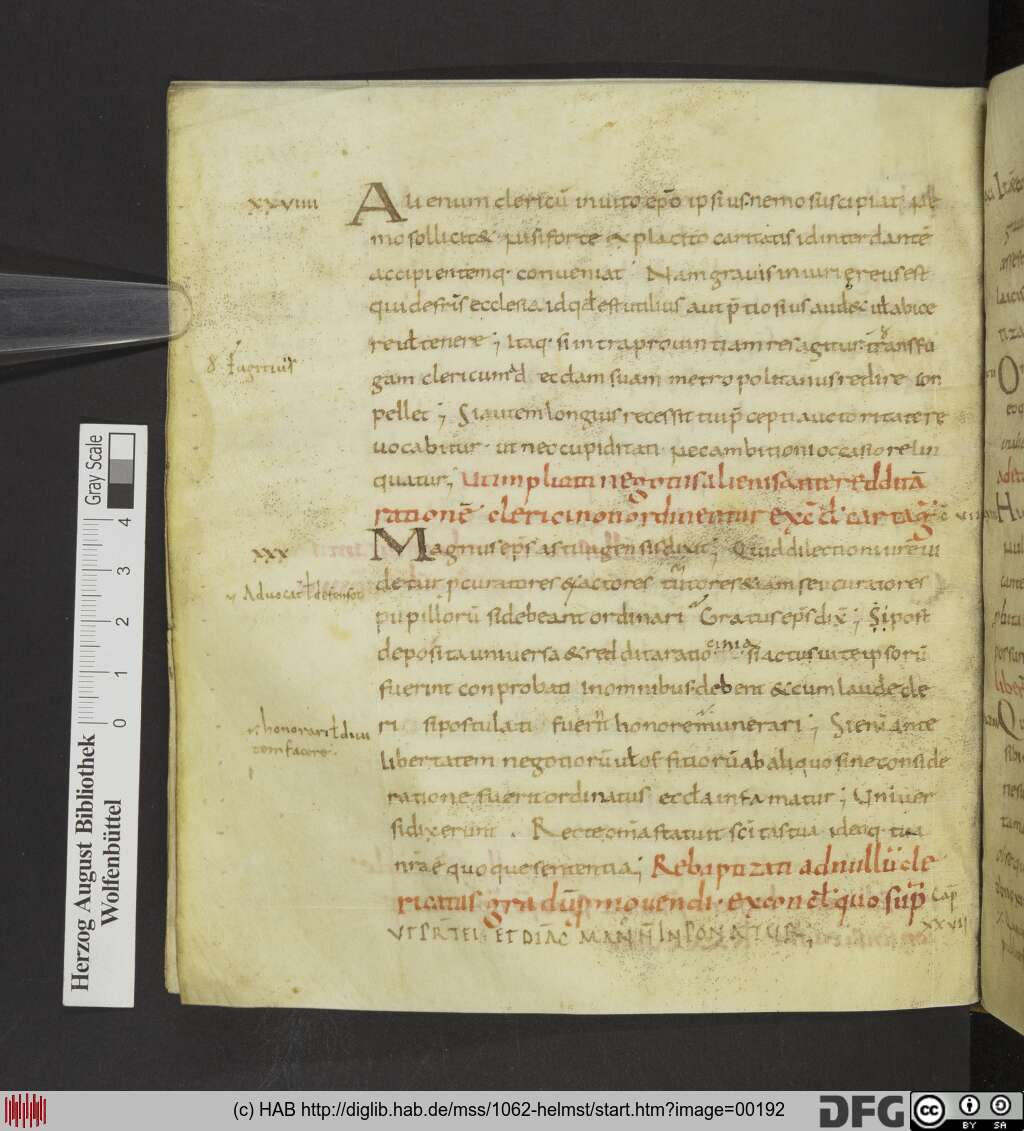 xxviiii
Alienum clericū inuito ep̄o ipsius nemo suscipiat
mo sollicitet nisi forte ex placito caritatis id inter dantē
accipientemq· conueniat · Nam grauis iniurię reus est
qui de fr̄is ecclesia id qđ est utilius aut p̄tiosius audet uł abice
re uł tenere ; Itaq· si intra prouintiam res agitur transfu
gam clericum ad ecclam suam metropolitanus redire con
pellet ; Si autem longius recessit tui p̄cepti auctoritate re
uocabitur · ut nec cupiditati · nec ambitioni occasio relin
quatur ; Ut impliciti negotiis alienis ante redditā
rationē clerici non ordinentur ex cōcł· cartaḡ
xxx
Magnus ep̄s astuagensis dixit ; Quid dilectioni ur̄e ui
detur p̄curatores & actores tutores etiam seu curatores
pupillorū si debeant ordinari Gratus ep̄s dix̄ ; Si post
deposita uniuersa & reddita ratiocinia si actus uitę ipsorū
fuerint conprobati in omnibus debent & cum laude cle
ri si postulati fuerint honore munerari ; Si enī ante
libertatem negotiorū uł offitiorū ab aliquo sine conside
ratione fuerit ordinatus eccła infamatur ; Uniuer
si dixerunt . Recte om̄ia statuit sc̄itas tua ideoq· tua
n̄rae quoque sententia ; Rebaptizati ad nullū cle
ricatus gradū p̄mouendi · ex concł· quo sup̄ Cap̄
xxvii
8· fugitiuus
Aduocat ł defensor
honorari ł diui
tem facere
Herzog August Bibliothek
Wolfenbüttel
Gray Scale
0 1 2 3 4
(c) HAB http://diglib.hab.de/mss/1062-helmst/start.htm?image=00192
DFG
cc BY SA